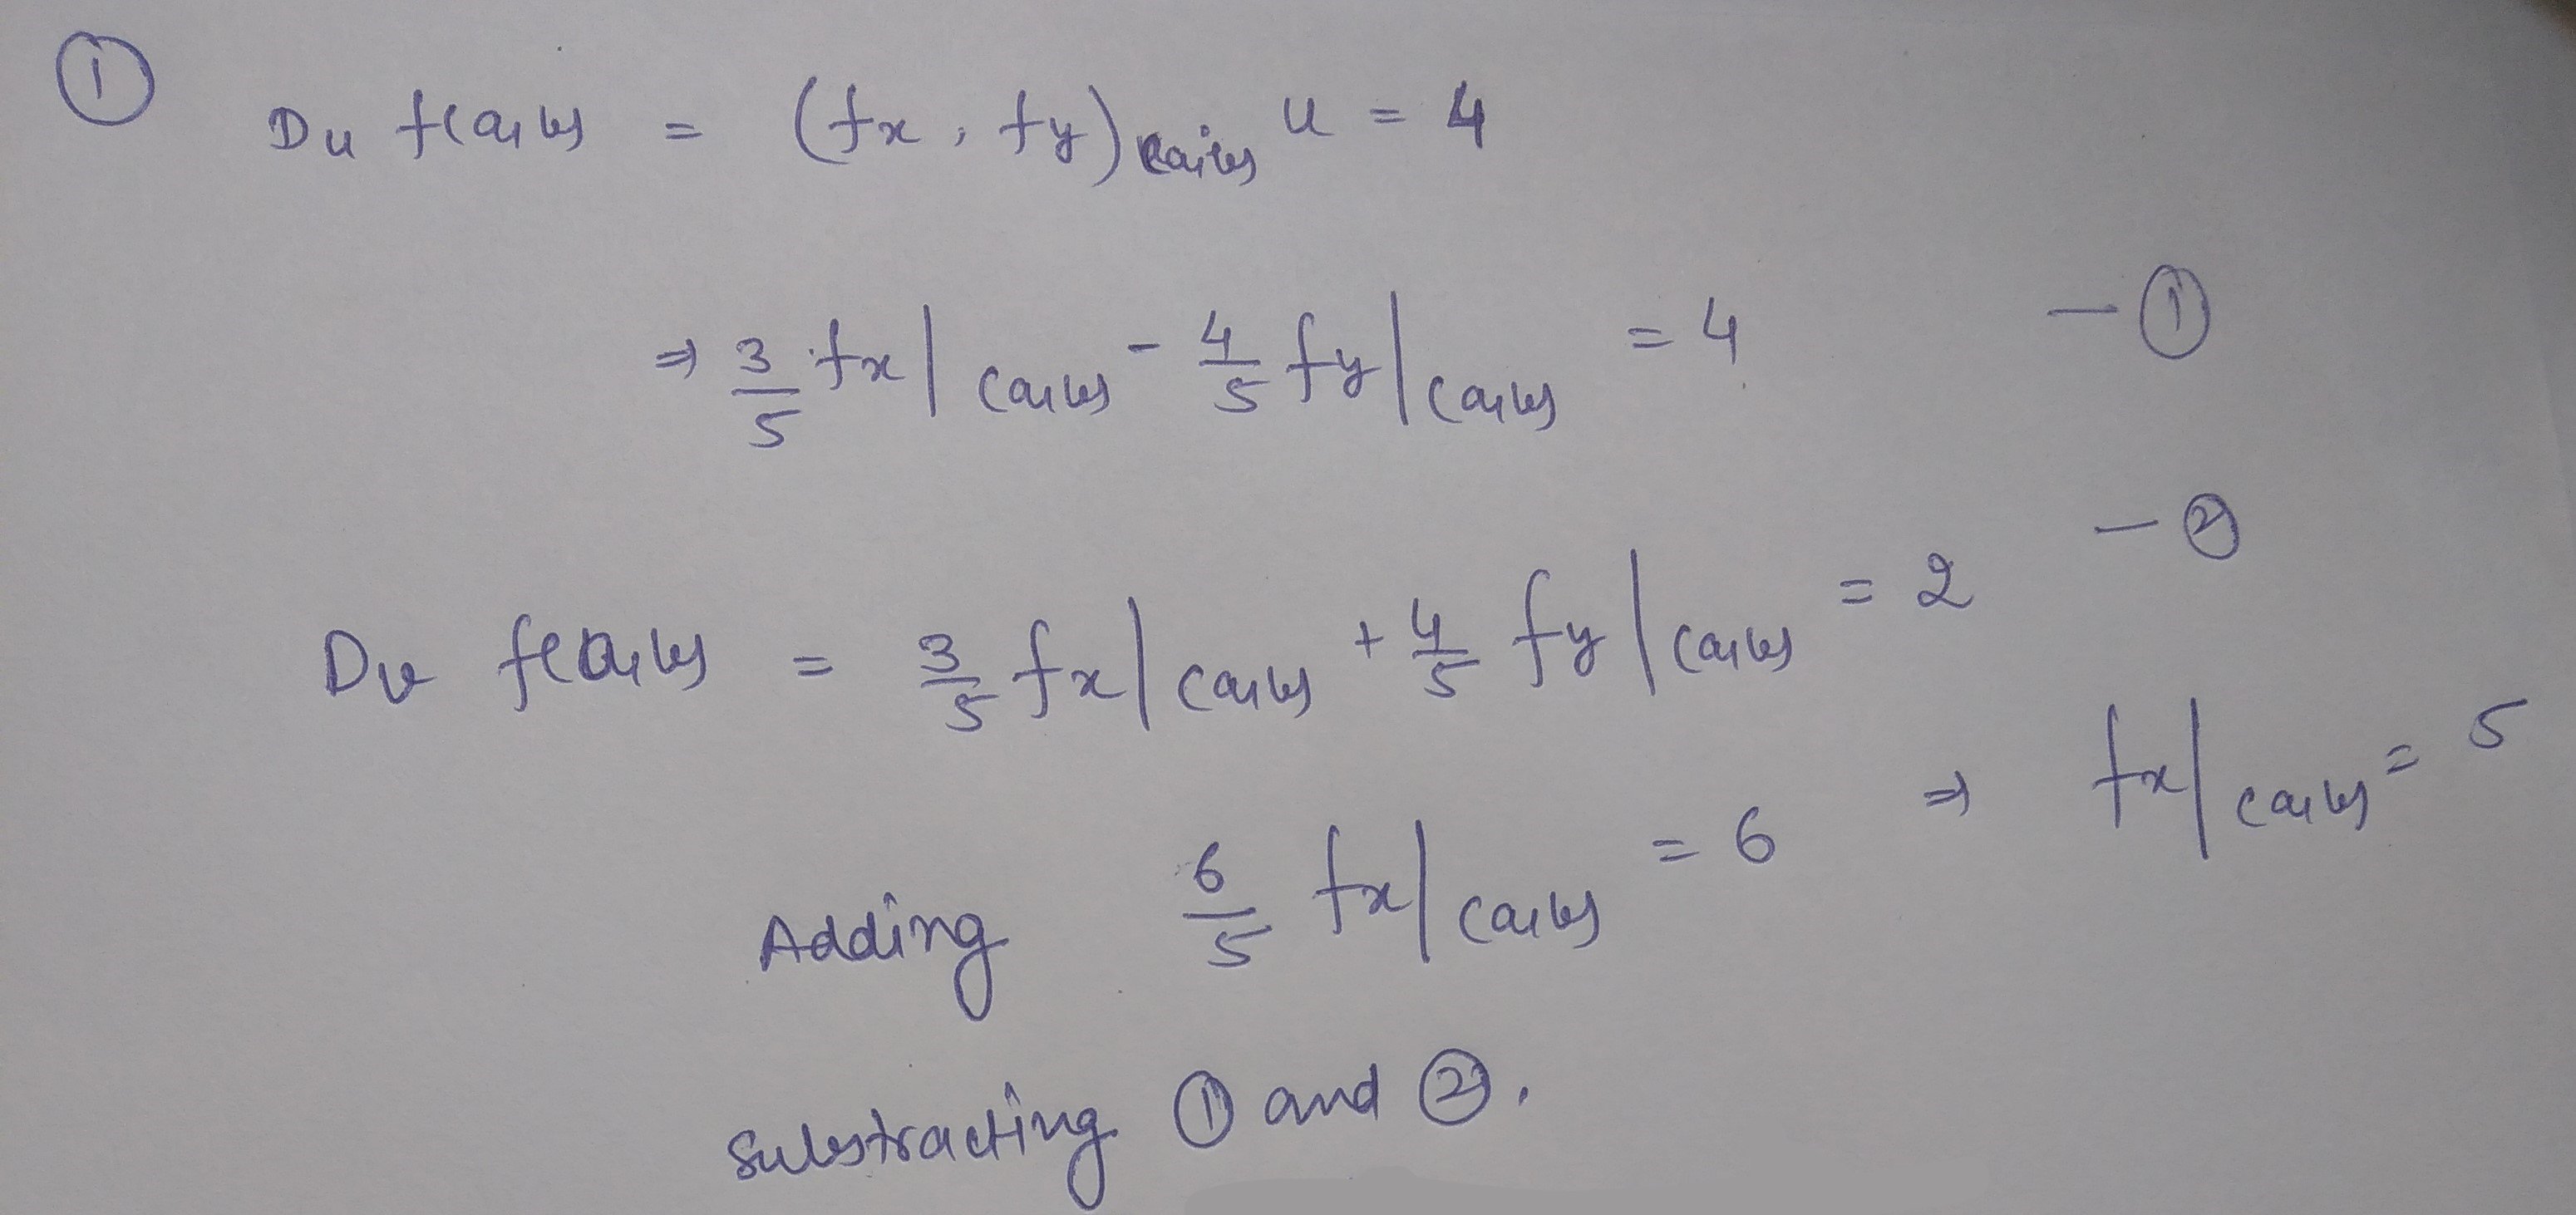 ①
Du f(a,b) = (fx, fy)(a,b) u = 4
⇒ 3/5 fx|(a,b) - 4/5 fy|(a,b) = 4 - ①
Dv f(a,b) = 3/5 fx|(a,b) + 4/5 fy|(a,b) = 2 - ②
Adding 6/5 fx|(a,b) = 6 ⇒ fx|(a,b) = 5
Substracting ① and ②.